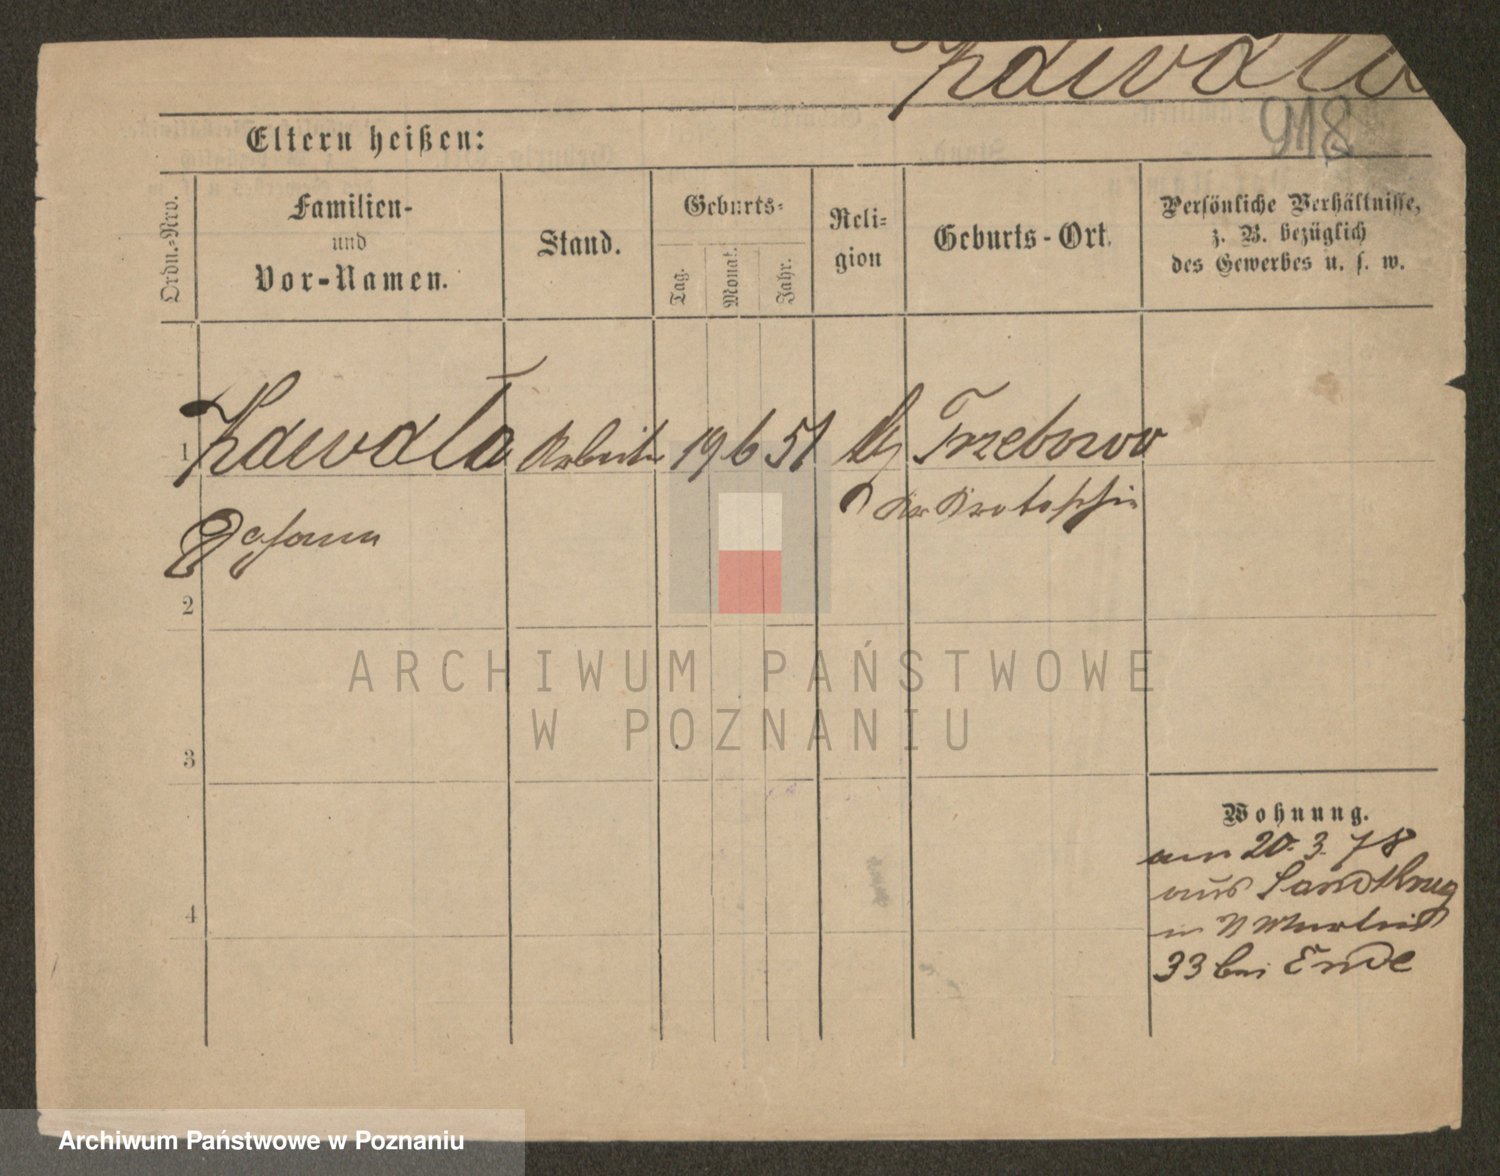 Kawala
918
Eltern heißen:
Ordn.=Nro.
Familien-
und
Vor-Namen.
Stand.
Geburts=
Tag.
Monat.
Jahr.
Reli=
gion
Geburts-Ort.
Persönliche Verhältnisse,
z. B. bezüglich
des Gewerbes u. s. w.
1 Kawala Arbeiter 19 6 51 Trzebowo
Kr Krotoschin
Johann
2
3
4
Wohnung.
am 20. 3. 78
aus
in
33 bei Ende
ARCHIWUM PAŃSTWOWE
W POZNANIU
Archiwum Państwowe w Poznaniu